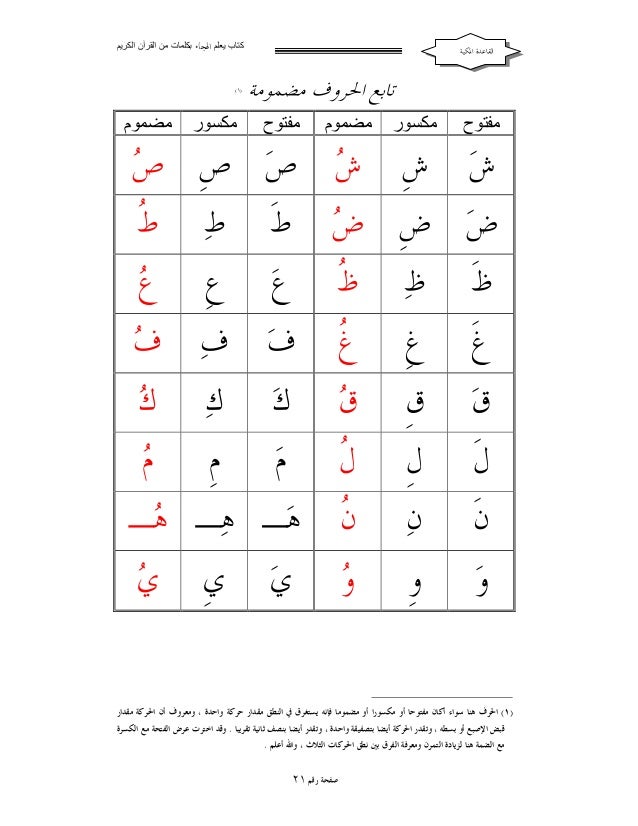 القاعدة المكية
كتاب يعلم الهجاء بكلمات من القرآن الكريم
تابع الحروف مضمومة (١)
مفتوح مكسور مضموم مفتوح مكسور مضموم
شَ شِ شُ صَ صِ صُ
ضَ ضِ ضُ طَ طِ طُ
ظَ ظِ ظُ عَ عِ عُ
غَ غِ غُ فَ فِ فُ
قَ قِ قُ كَ كِ كُ
لَ لِ لُ مَ مِ مُ
نَ نِ نُ هَـــ هِـــ هُـــ
وَ وِ وُ يَ يِ يُ
(١) الحرف هنا سواء أكان مفتوحا أو مكسورا أو مضموما فإنه يستغرق في النطق مقدار حركة واحدة ، ومعروف أن الحركة مقدار
قبض الإصبع أو بسطه ، وتقدر الحركة أيضا بتصفيقة واحدة ، وتقدر أيضا بنصف ثانية تقريبا . وقد اخترت عرض الفتحة مع الكسرة
مع الضمة هنا لزيادة التمرن ومعرفة الفرق بين نطق الحركات الثلاث ، والله أعلم .
صفحة رقم ٢١